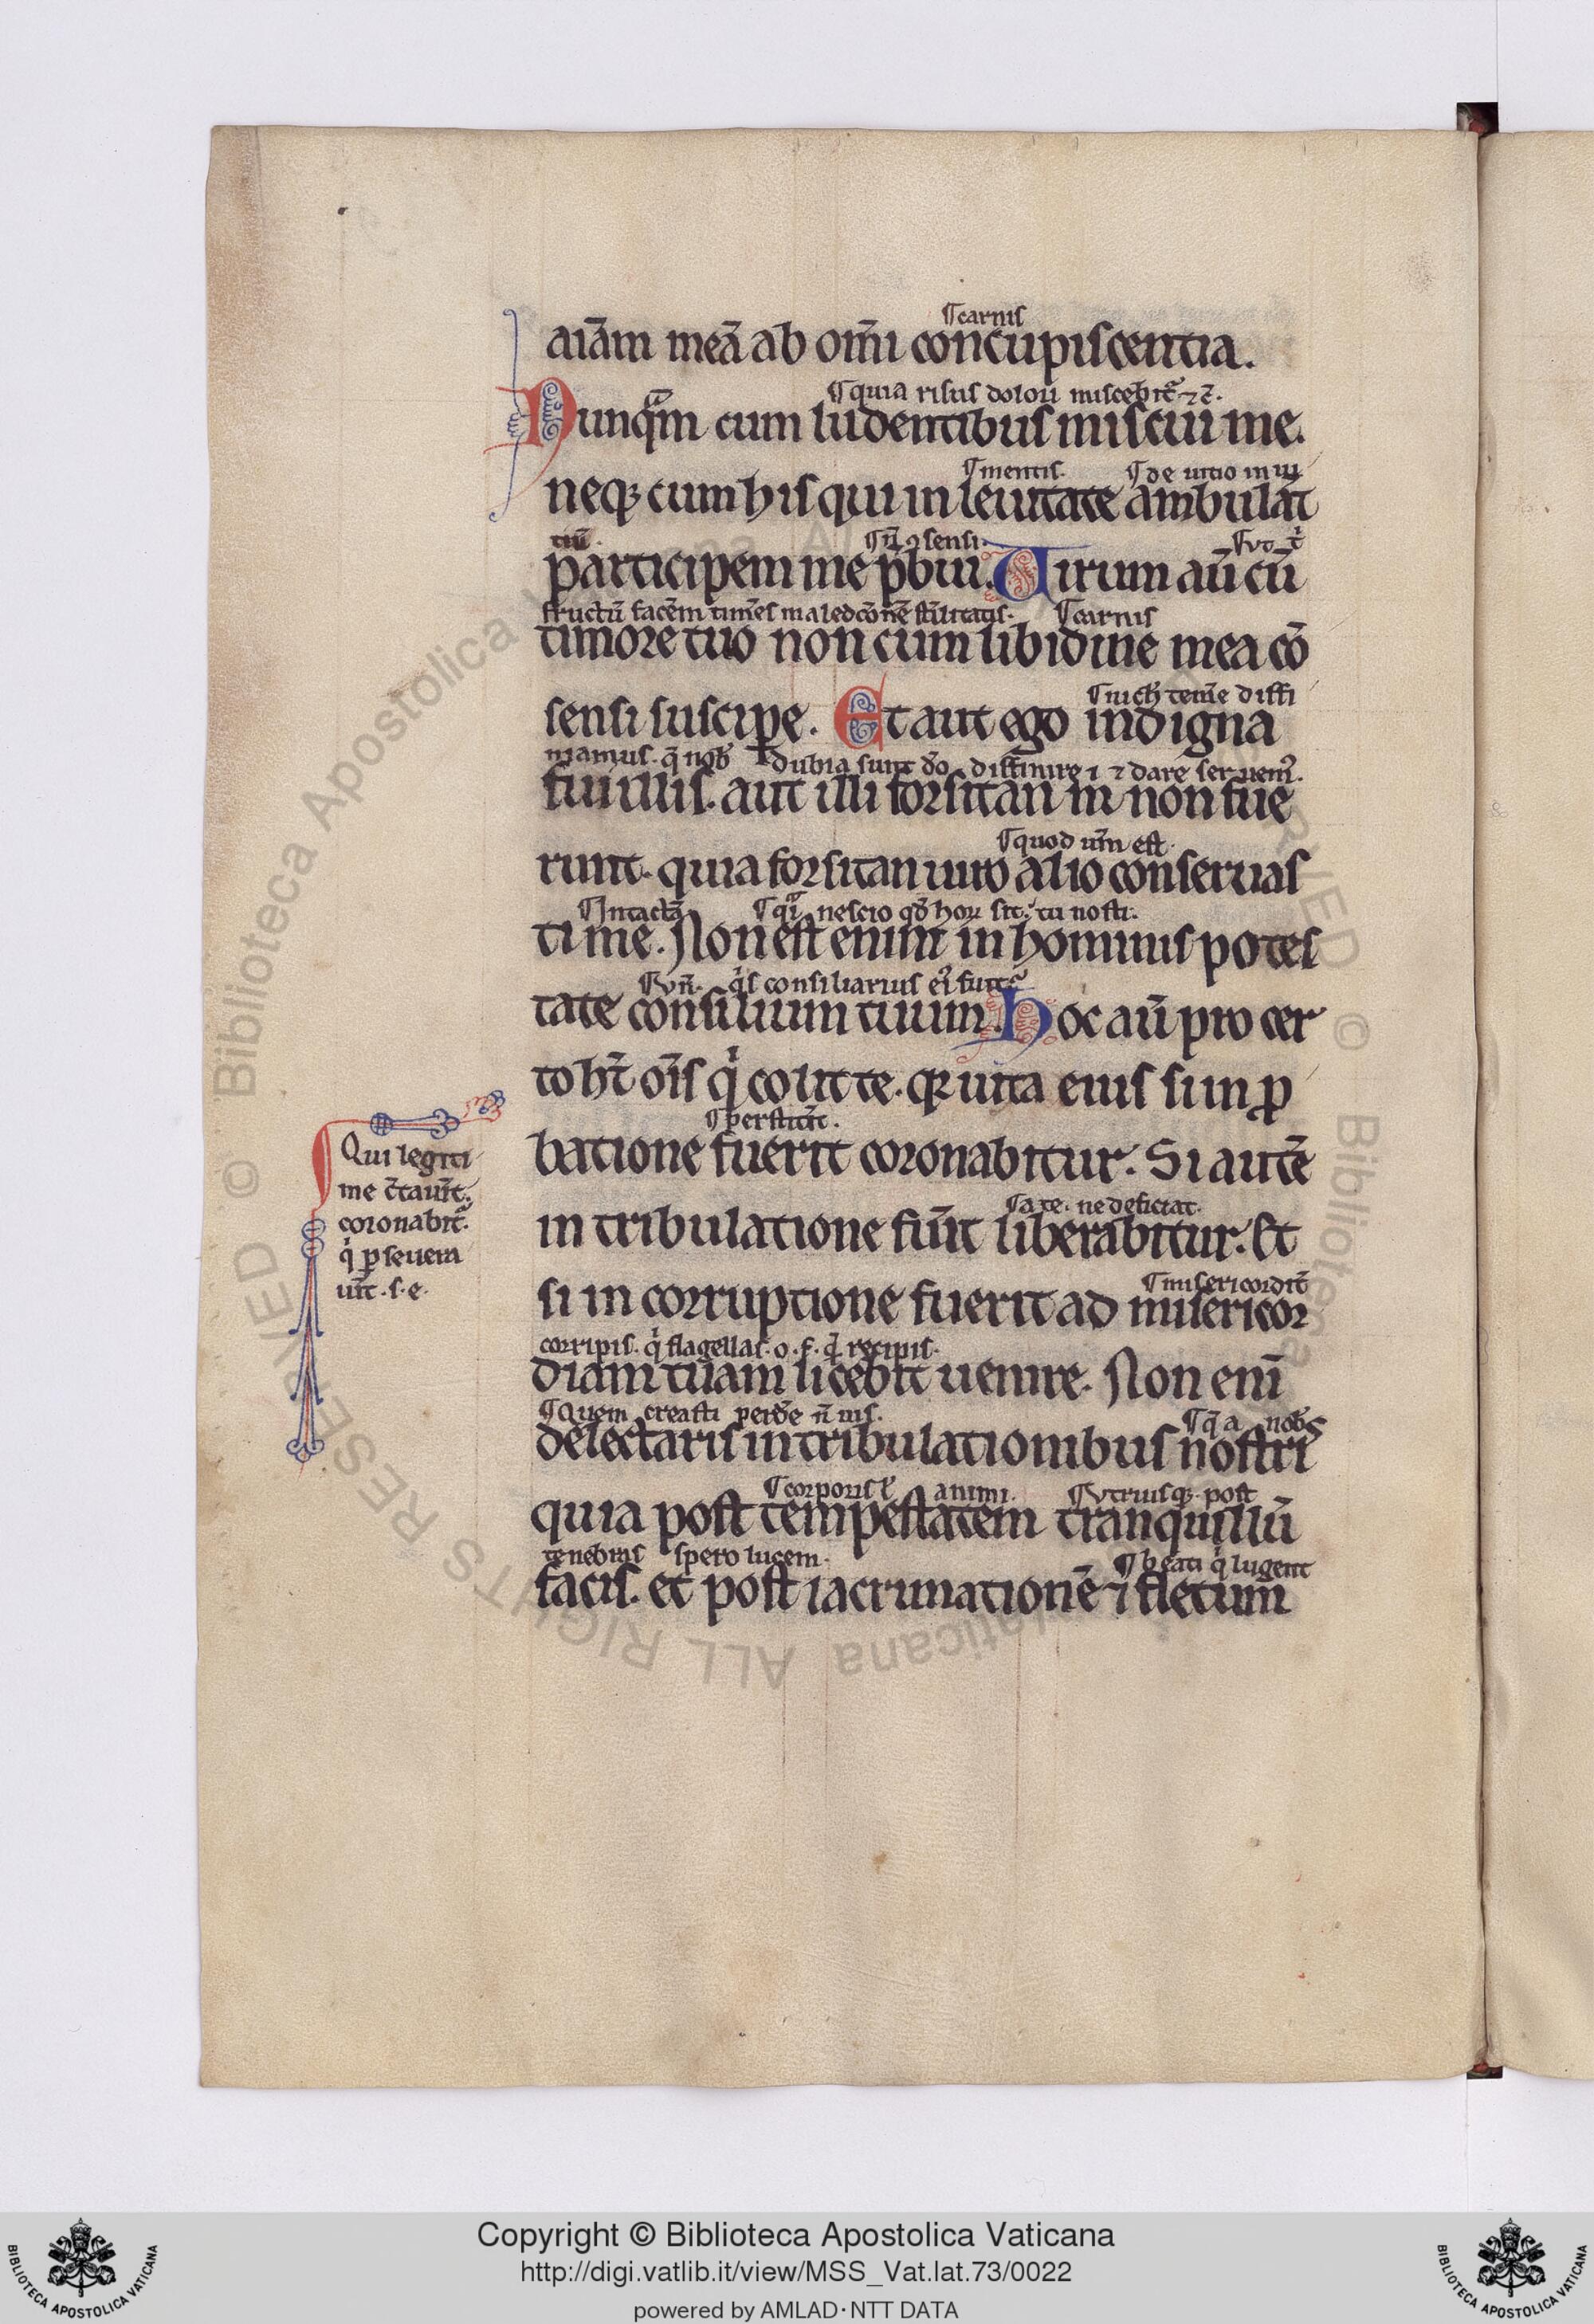 ¶carnis
aiãm meã ab om̃i concupiscentia.
¶quia risus dolori miscebit᷑ ⁊ c̃.
Nunqᷓm cum ludentibus miscui me.
¶mentis. ¶de uitio in ui
neqꝫ cum his qui in leuitate ambulãt
tiũ. ¶ñ ꝯsensi.
participem me p̃bui. Uirum aũ cũ
fructũ facẽm timẽs maledcõnẽ st̃ilitatis. ¶carnis
timore tuo non cum libidine mea cõ
¶nich̃ temẽ diffi
sensi suscipe. Et aut ego indigna
niamus. q̃ nob̃ dubia sunt dõ diffinire
fui illis. aut illi forsitan m̃ non fue
¶quod um̃ est.
runt. quia forsitan uiro alio conseruas
¶Intactã ¶qi nescio qd̃ hoꝝ sit. tu nosti.
ti me. Non est enim in hominis potes
¶vñ. qⁱs consiliarius ei᷒ fuit
tate consilium tuum. Hoc aũ pro cer
to hꝫ̃ oĩs qⁱ colit te. qꝛ uita eius si in ꝓ
¶perstit̃it.
batione fuerit coronabitur. Si autẽ
¶a te. ne deficiat.
in tribulatione fũit liberabitur. Et
¶misericordit̃
si in corruptione fuerit ad misericor
corripis. qⁱ flagellas. o. f. q̃ recipis.
diam tuam licebit uenire. Non enĩ
¶Quem creasti perdẽ ñ uis. ¶q̃ a nob̃
delectaris in tribulationibus nostris
¶corporis ul̃ animi. ¶vtriusqꝫ. post
quia post tempestatem tranquillũ
tenebras spero lucem. ¶beati qⁱ lugent
facis. et post lacrimationẽ ⁊ fletum
Qui legiti
me c̃tauit̃.
coronabit᷑.
qⁱ ꝑseuera
uit̃. s. e.
Copyright © Biblioteca Apostolica Vaticana
http://digi.vatlib.it/view/MSS_Vat.lat.73/0022
powered by AMLAD·NTT DATA
BIBLIOTECA APOSTOLICA VATICANA
BIBLIOTECA APOSTOLICA VATICANA